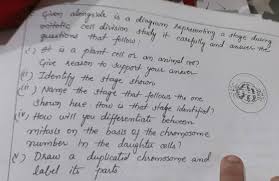 Given alongside is a diagram representing a stage during
mitotic cell division study it carefully and answer the
questions that follow:
(i) It is a plant cell or an animal cell
Give reason to support your answer
(ii) Identify the stage shown
(iii) Name the stage that follows the one
shown here. How is that stage identified?
(iv) How will you differentiate between
mitosis on the basis of the chromosome
number in the daughter cells?
(v) Draw a duplicated chromosome and
label its parts